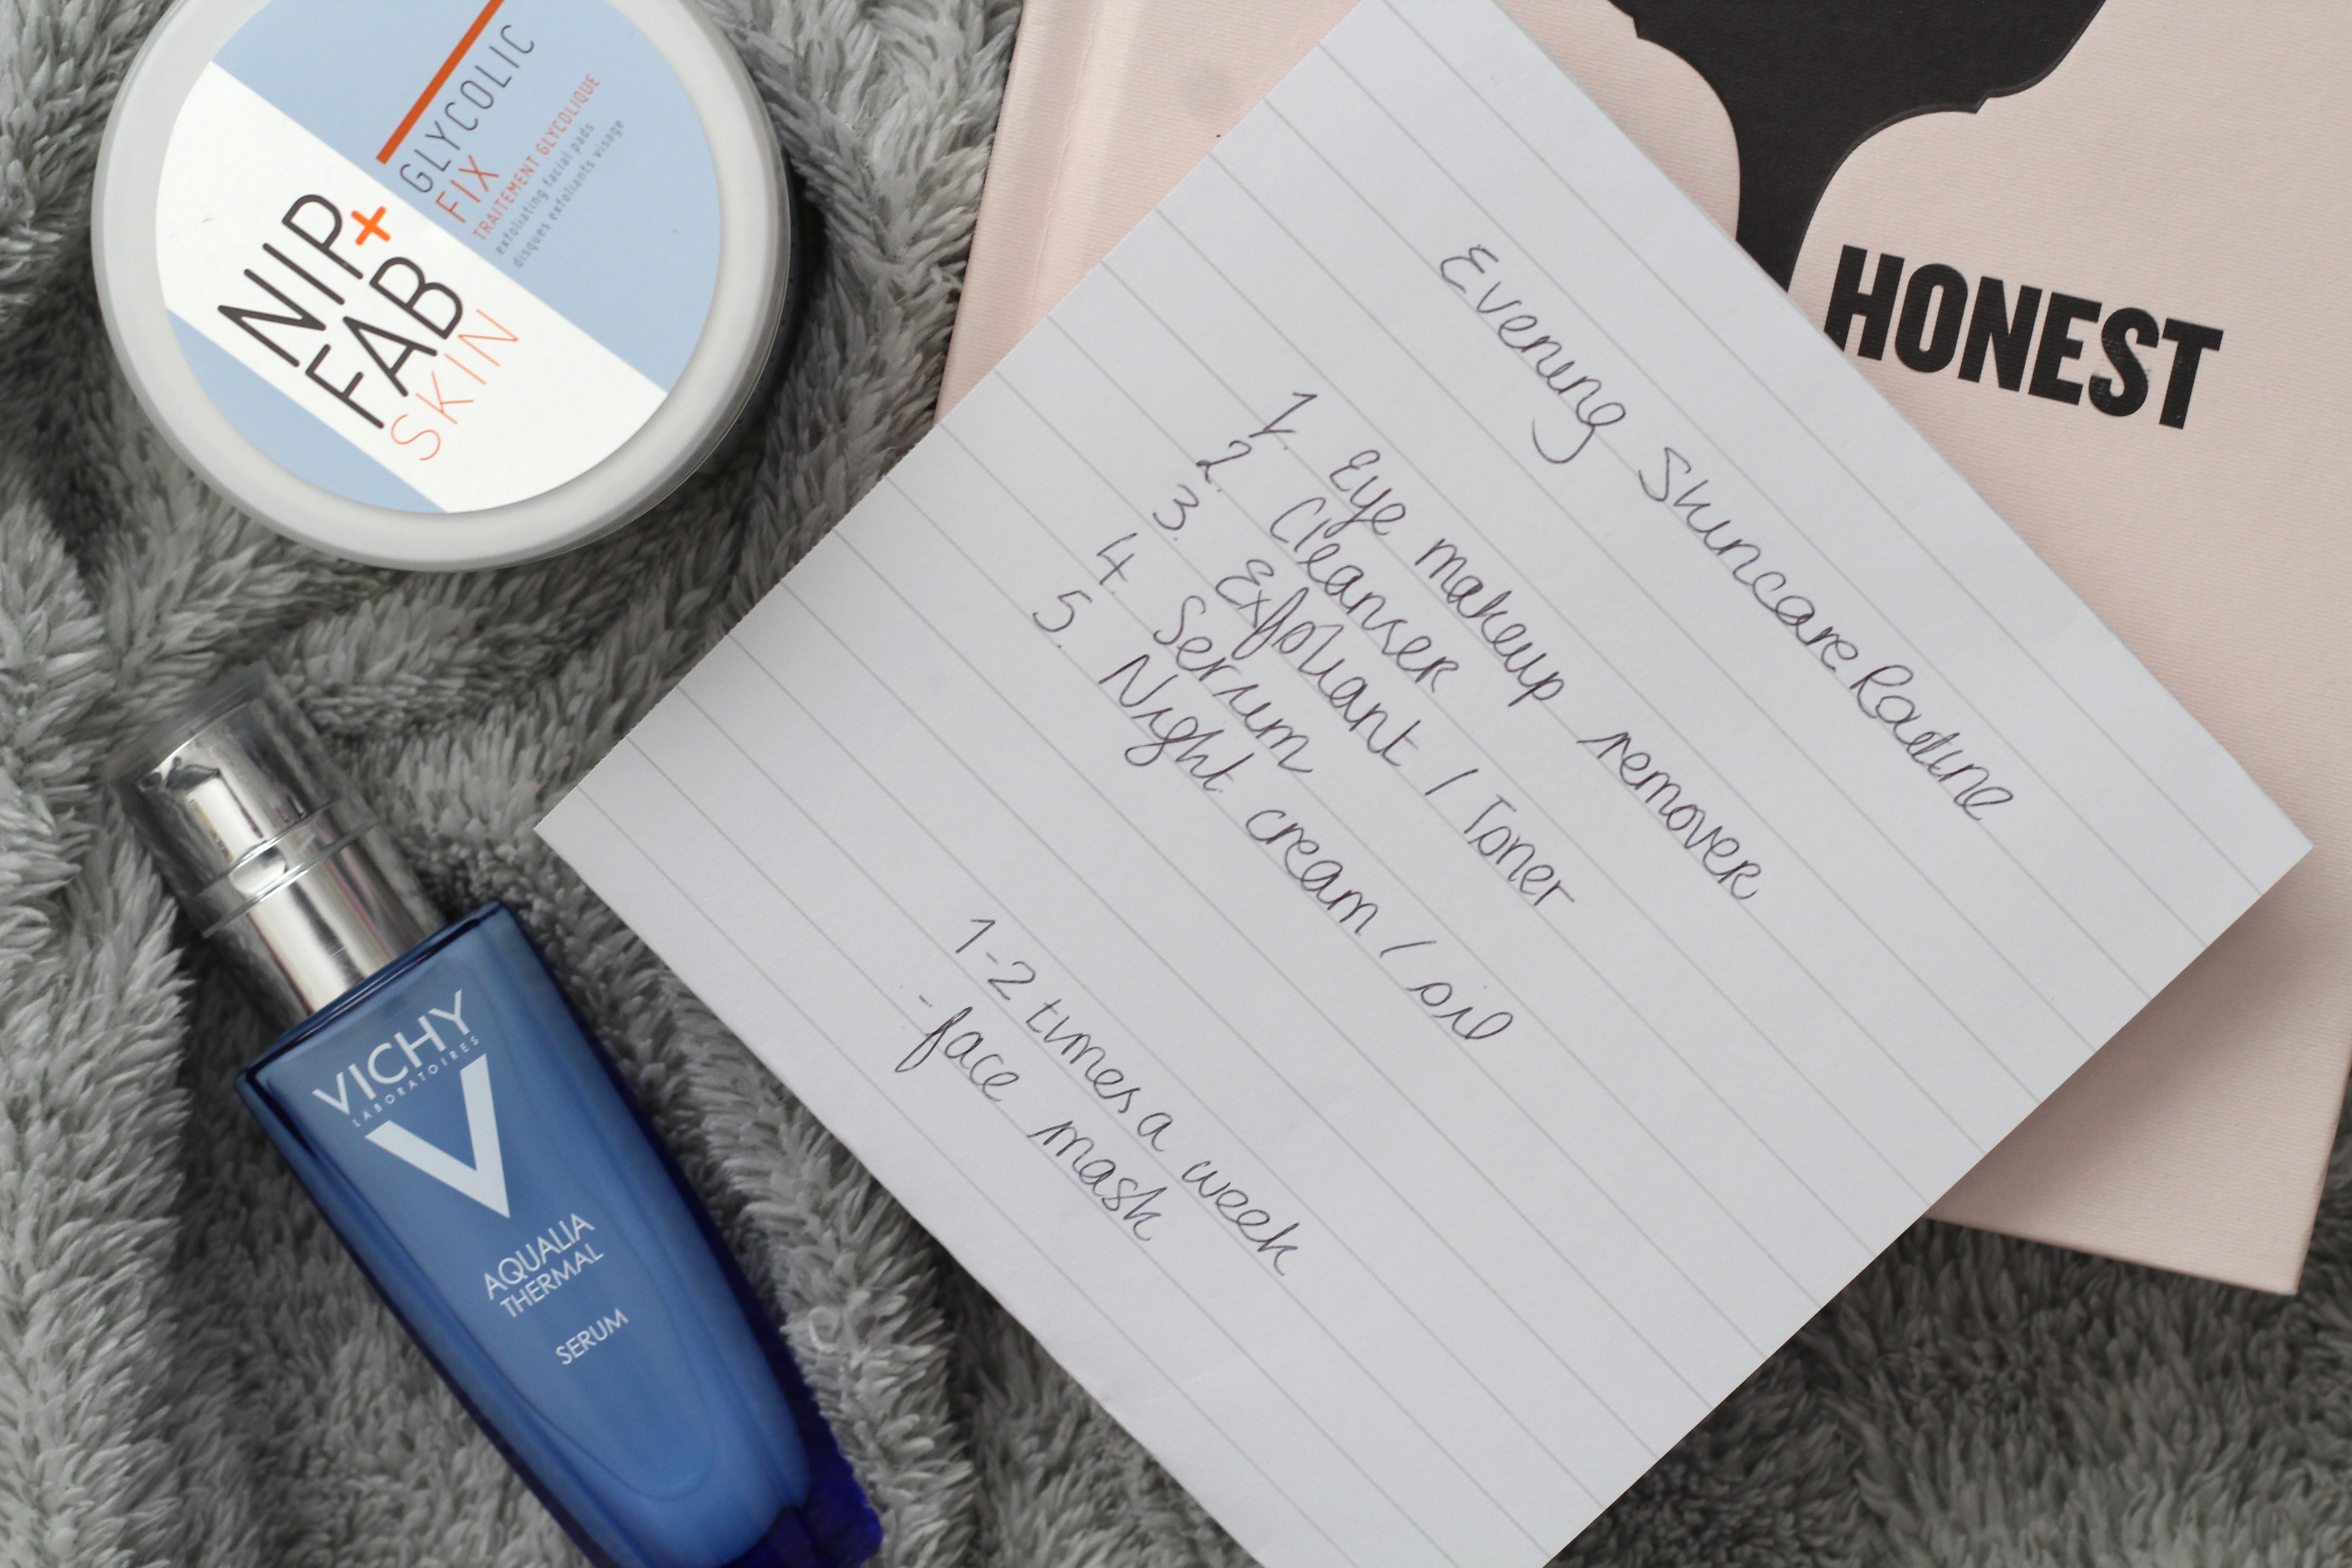 GLYCOLIC
FIX
TRAITEMENT GLYCOLIQUE
exfoliating facial pads
disques exfoliants visage
NIP+
FAB
SKIN
HONEST
Evening Skincare Routine
1. Eye makeup remover
2. Cleanser
3. Exfoliant / Toner
4. Serum
5. Night cream / oil
1-2 times a week
- face mask
VICHY
LABORATOIRES
V
AQUALIA
THERMAL
SERUM